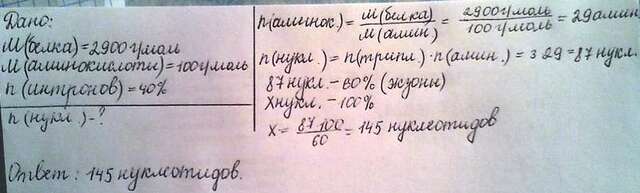 Дано:
M(белка)=2900 г/моль
M(аминокислоти)=100г/моль
n(интронов)=40%
n(нукл.)-?
n(аминок.)= M(белка)/M(амин.) = 2900 г/моль/100 г/моль =29амин
n(нукл.)=n(трипл.)·n(амин.)= 3·29=87 нукл.
87 нукл. – 60% (экзоны)
Xнукл. – 100%
X= 87·100/60 = 145 нуклеотидов
Ответ: 145 нуклеотидов.